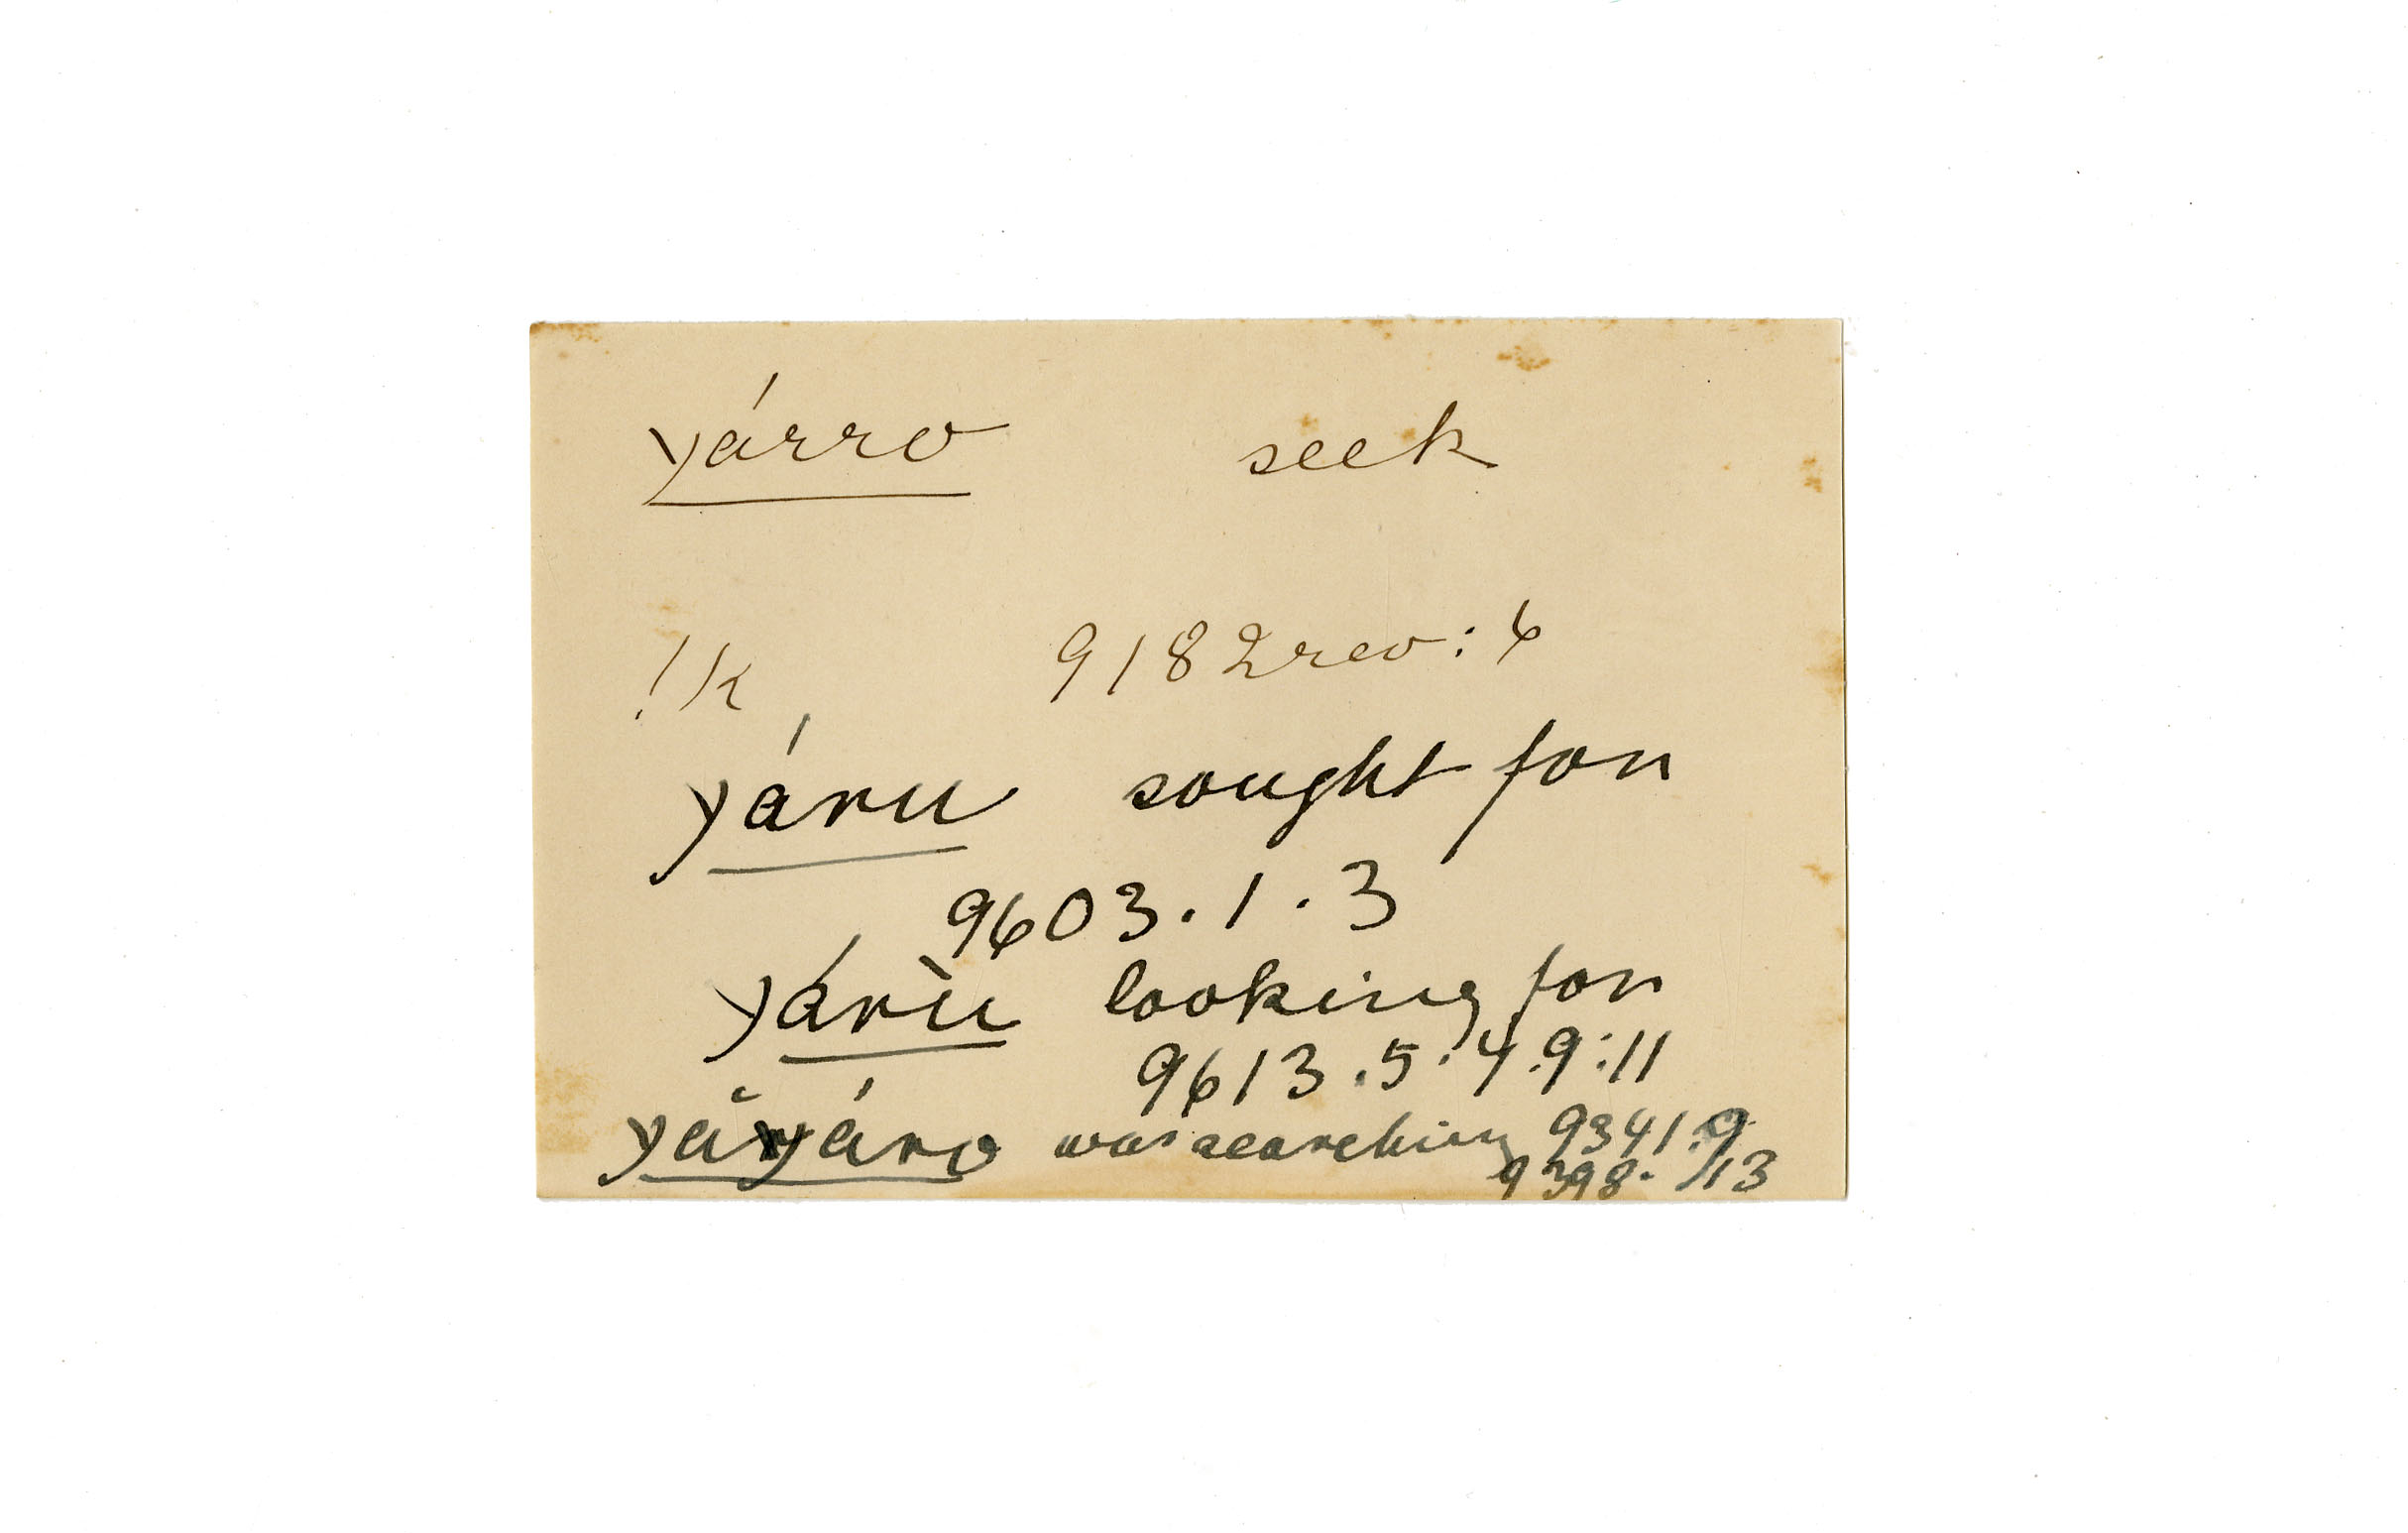 yárro seek
!k 9182rev:6
yáru sought for
9603.1.3
yárù looking for
9613.5.4.9:11
yā̆yáro was searching 9341:9
9398. /13